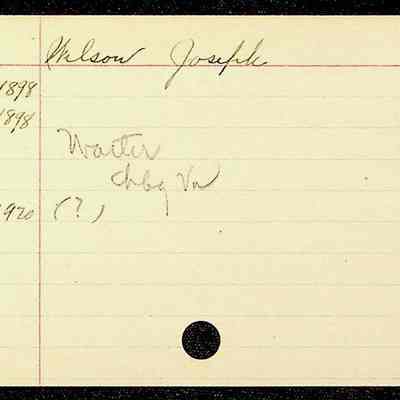 Wilson Joseph
1898
1898
Waiter
chbg Va
1920 (?)